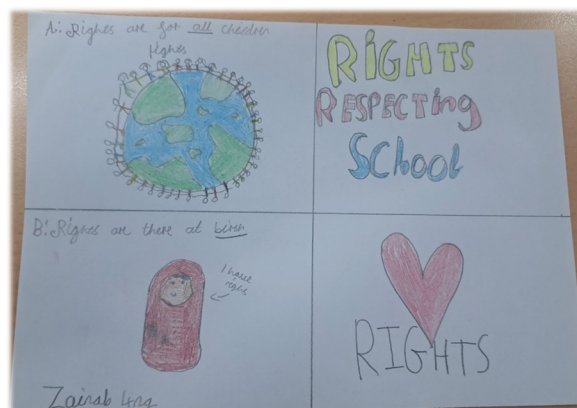 A: Rights are for all children
Rights
RIGHTS
RESPECTING
SCHOOL
B: Rights are there at birth
I have
rights
RIGHTS
Zainab